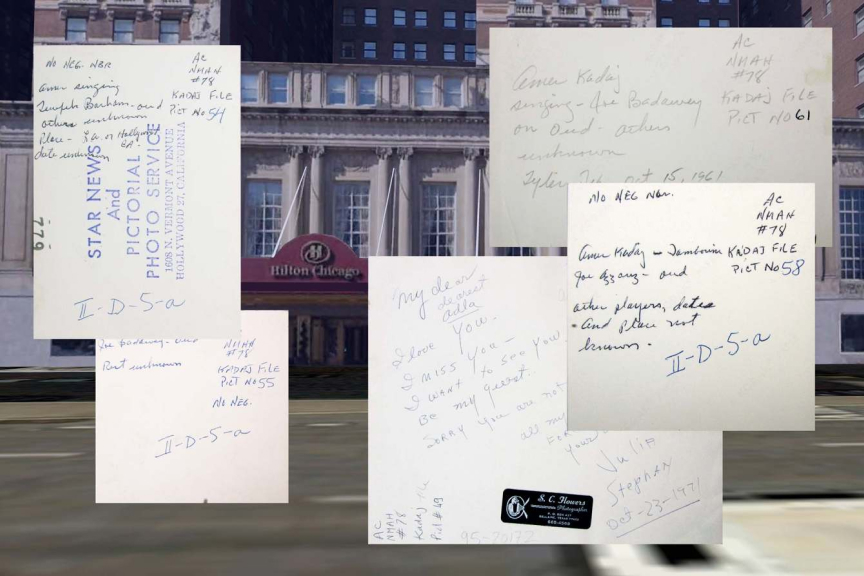 No NEG. NBR
AC
NMAH
#78
KADAJ FILE
PICT No 54
Amer singing
Joseph Barham - oud
others unknown
Place - L.A. or Hollywood
CA.
date unknown
STAR NEWS
And
PICTORIAL
PHOTO SERVICE
1608 N. VERMONT AVENUE
HOLLYWOOD 27, CALIFORNIA
779
II-D-5-a
AC
NMAH
#78
KADAJ FILE
PICT NO 61
Amer Kadaj
singing - Joe Badaway
on oud - others
unknown
Oct 15, 1961
Hilton Chicago
NO NEG NBR.
AC
NMAH
#78
KADAJ FILE
PICT No 58
Amer Kadaj - Tambourine
Joe Azzouz - oud
other players, dates
- and place not
known -
II-D-5-a
Joe Badaway - oud
Rest unknown
NMAH
#78
KADAJ FILE
PICT NO 55
NO NEG.
II-D-5-a
my dear
dearest
adla
I love you.
I MISS You -
I WANT to SEE You
Be my guest.
SORRY you are not
all my
FOR
your
Julie
Stephan
Oct-23-1971
AC
NMAH
#78
Kadaj File
Pict # 49
S. C. Flowers
Photographer
95-20172